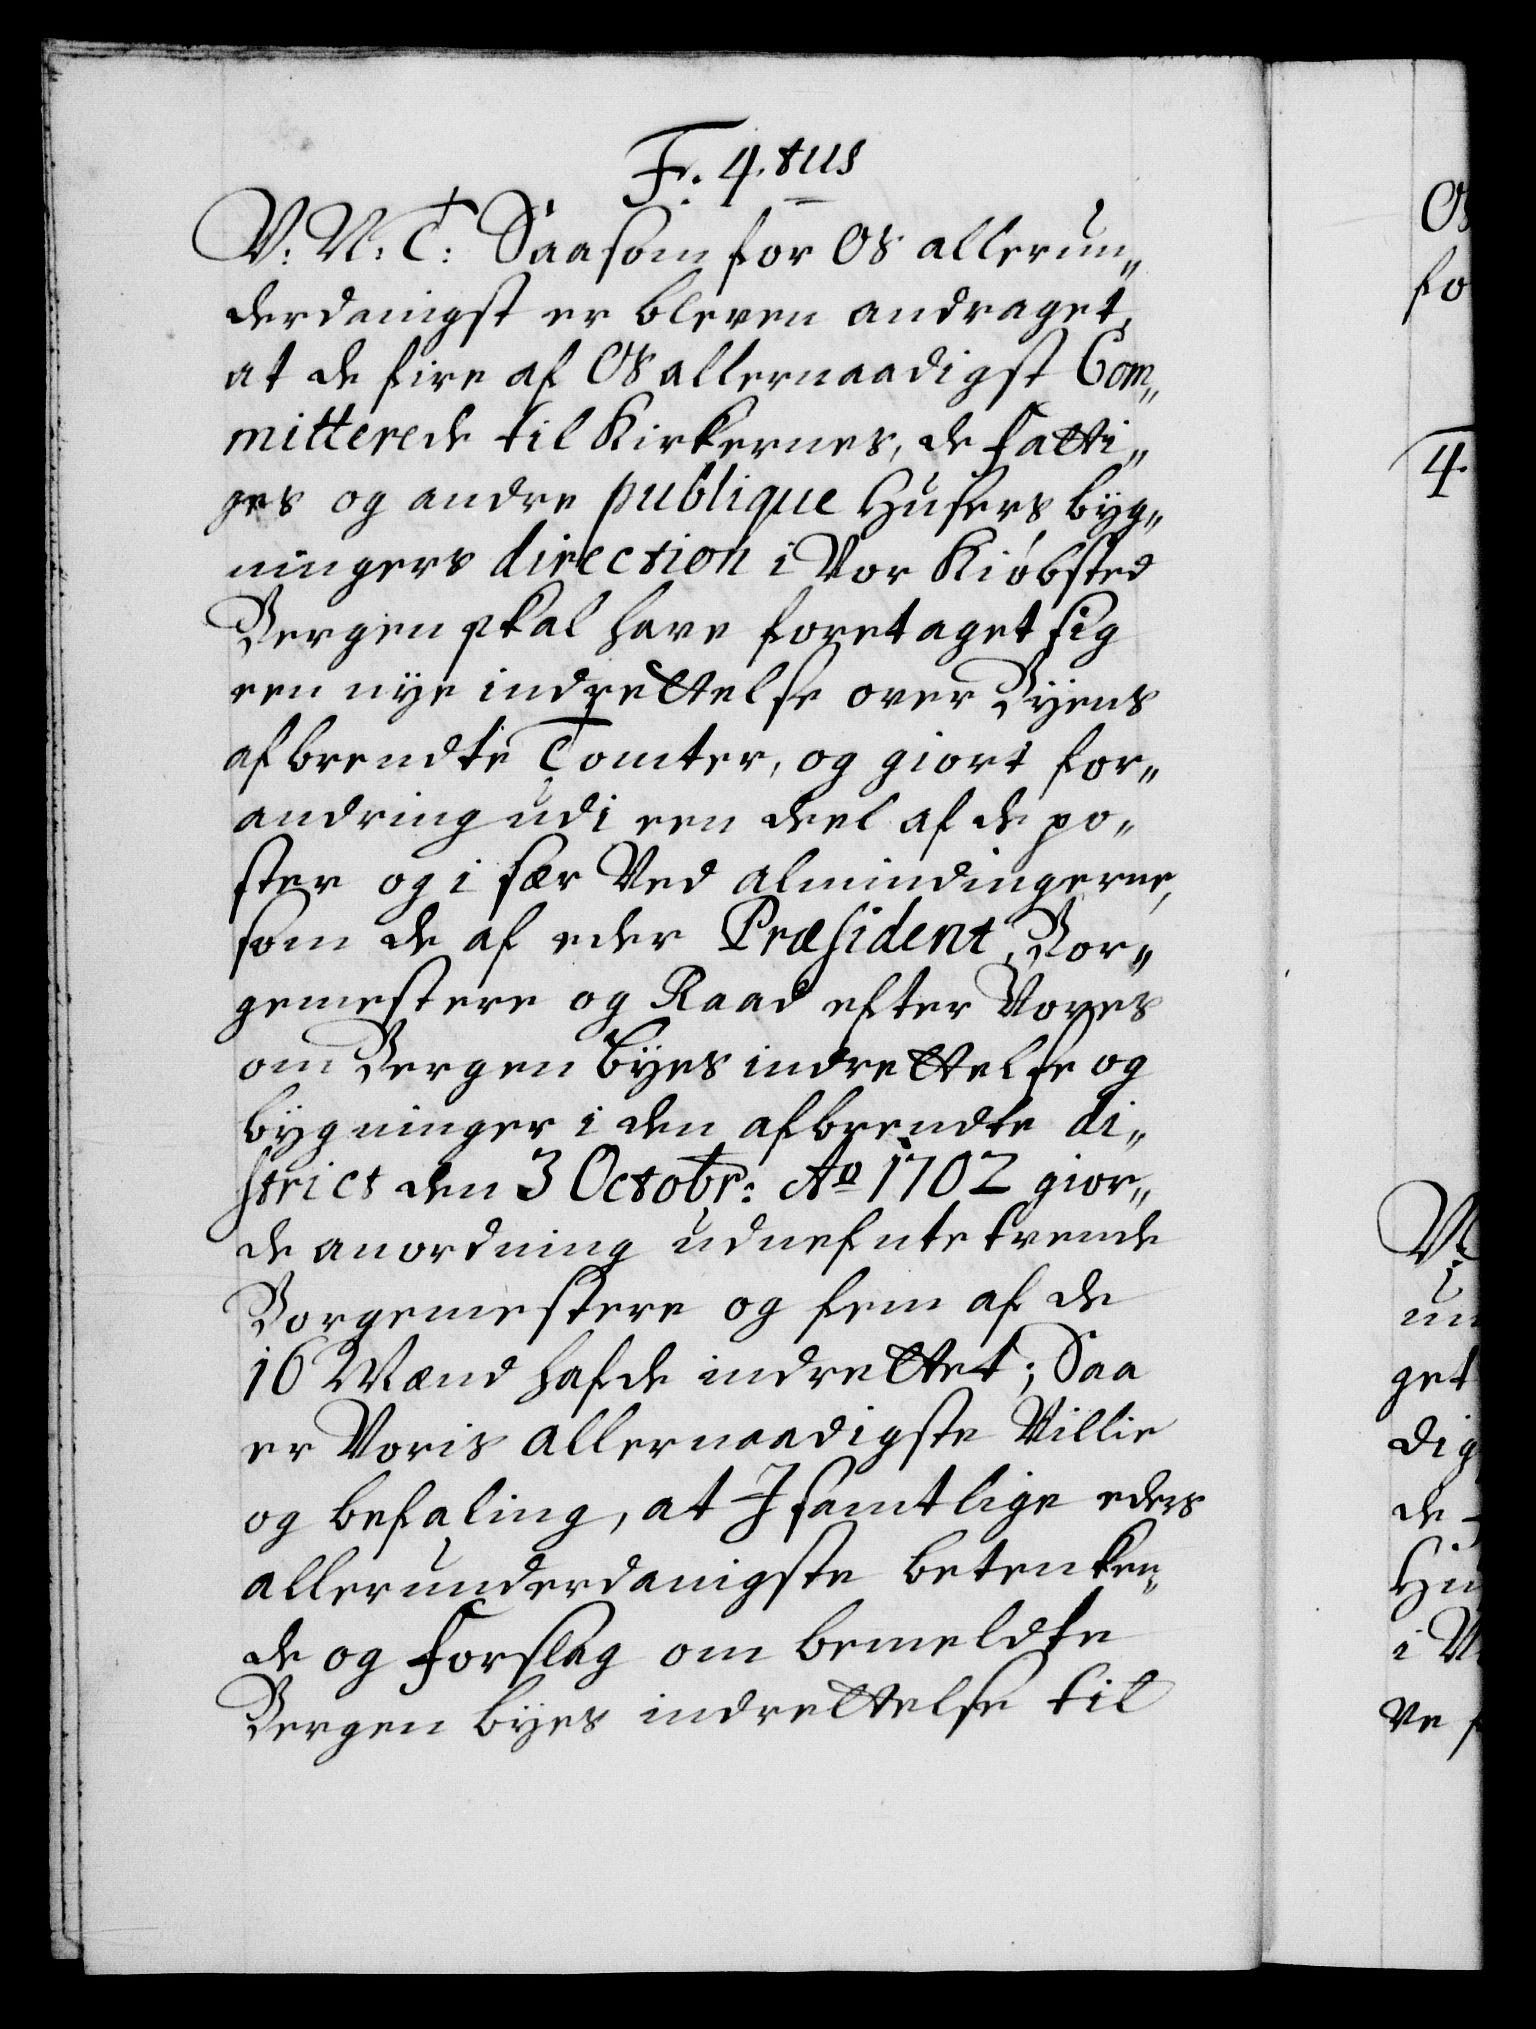 F. 4.tus
V: N: T: Saasom for Os allerun„
derdanigst er bleven andraget,
at de fire af Os allernaadigst Com„
mitterede til Kirkernes, de Fatti„
ges og andre publique Husers byg„
ningers direction i Vor Kiøbsted
Bergen skal have foretaget sig
een nye indrettelse over Byens
afbrendte Tomter, og giort for„
andring udi een deel af de po„
ster og i sær Ved almindingerne,
som de af eder Præsident, Bor„
gemestere og Raad efter Vores
om Bergen Byes indrettelse og
bygninger i den afbrendte di„
strict den 3 Octobr: Ao 1702 gior„
de anordning udnefnte tvende
Borgemestere og fem af de
16 Mænd hafde indrettet; Saa
er Voris allernaadigste Villie
og befaling, at I samtlige eders
allerunderdanigste betenken„
de og Forslag om bemeldte
Bergen byes indrettelse til
Os
fo
4.
V:
un
get
dig
de
Hu
i V
ve